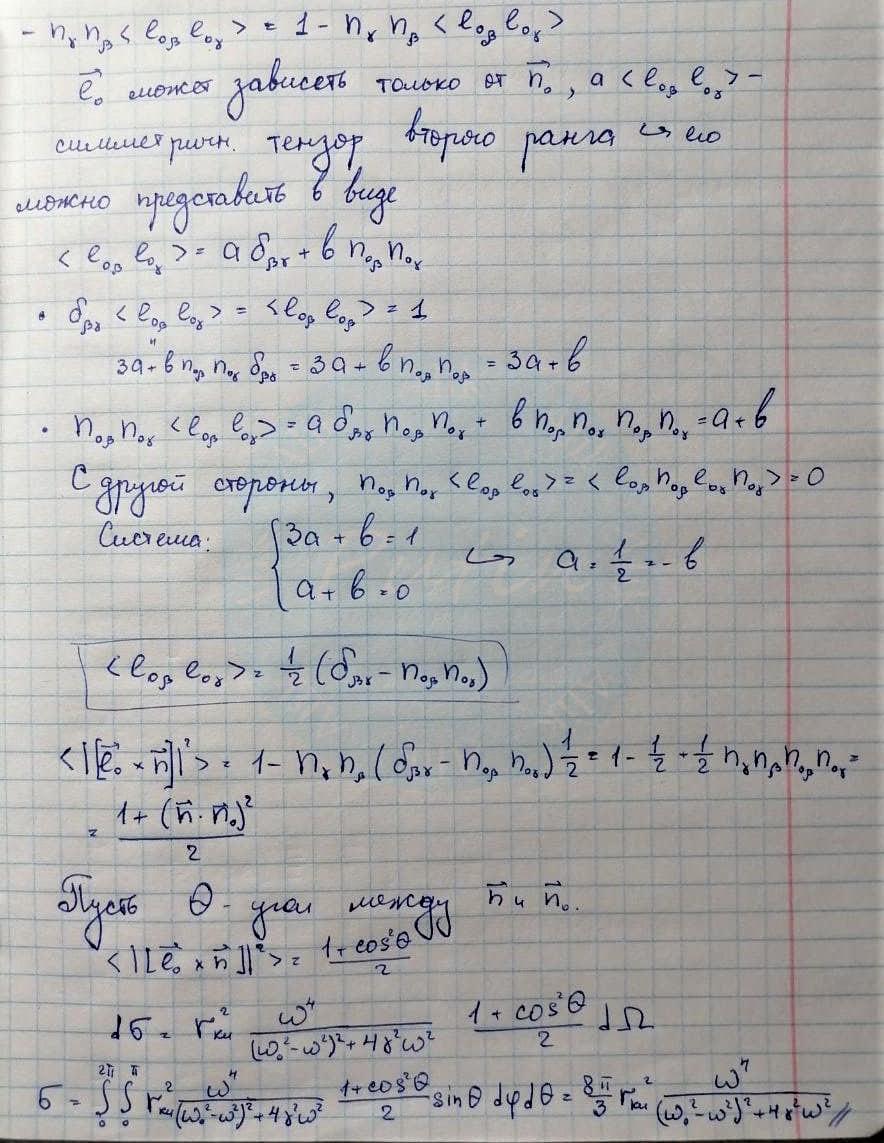 - n_γ n_β < e_{0β} e_{0γ} > = 1 - n_γ n_β < e_{0β} e_{0γ} >
e⃗₀ может зависеть только от n⃗₀, а < e_{0β} e_{0γ} > -
симметричн. тензор второго ранга ↪ его
можно представить в виде
< e_{0β} e_{0γ} > = a δ_{βγ} + b n_{0β} n_{0γ}
• δ_{βγ} < e_{0β} e_{0γ} > = < e_{0β} e_{0β} > = 1
"
3a + b n_{0β} n_{0γ} δ_{βγ} = 3a + b n_{0β} n_{0β} = 3a + b
• n_{0β} n_{0γ} < e_{0β} e_{0γ} > = a δ_{βγ} n_{0β} n_{0γ} + b n_{0β} n_{0γ} n_{0β} n_{0γ} = a + b
С другой стороны, n_{0β} n_{0γ} < e_{0β} e_{0γ} > = < e_{0β} n_{0β} e_{0γ} n_{0γ} > = 0
Система: { 3a + b = 1
a + b = 0 ↪ a = 1/2 = - b
< e_{0β} e_{0γ} > = 1/2 (δ_{βγ} - n_{0β} n_{0γ})
< |[e⃗₀ × n⃗]|² > = 1 - n_γ n_β (δ_{βγ} - n_{0β} n_{0γ}) 1/2 = 1 - 1/2 + 1/2 n_γ n_β n_{0β} n_{0γ} =
= (1 + (n⃗ · n⃗₀)²)/2
Пусть θ - угол между n⃗ и n⃗₀.
< |[e⃗₀ × n⃗]|² > = (1 + cos²θ)/2
dσ = r_{кл}² ω⁴/((ω₀² - ω²)² + 4γ²ω²) (1 + cos²θ)/2 dΩ
σ = ∫₀^{2π} ∫₀^{π} r_{кл}² ω⁴/((ω₀² - ω²)² + 4γ²ω²) (1 + cos²θ)/2 sinθ dφ dθ = 8π/3 r_{кл}² ω⁴/((ω₀² - ω²)² + 4γ²ω²) //